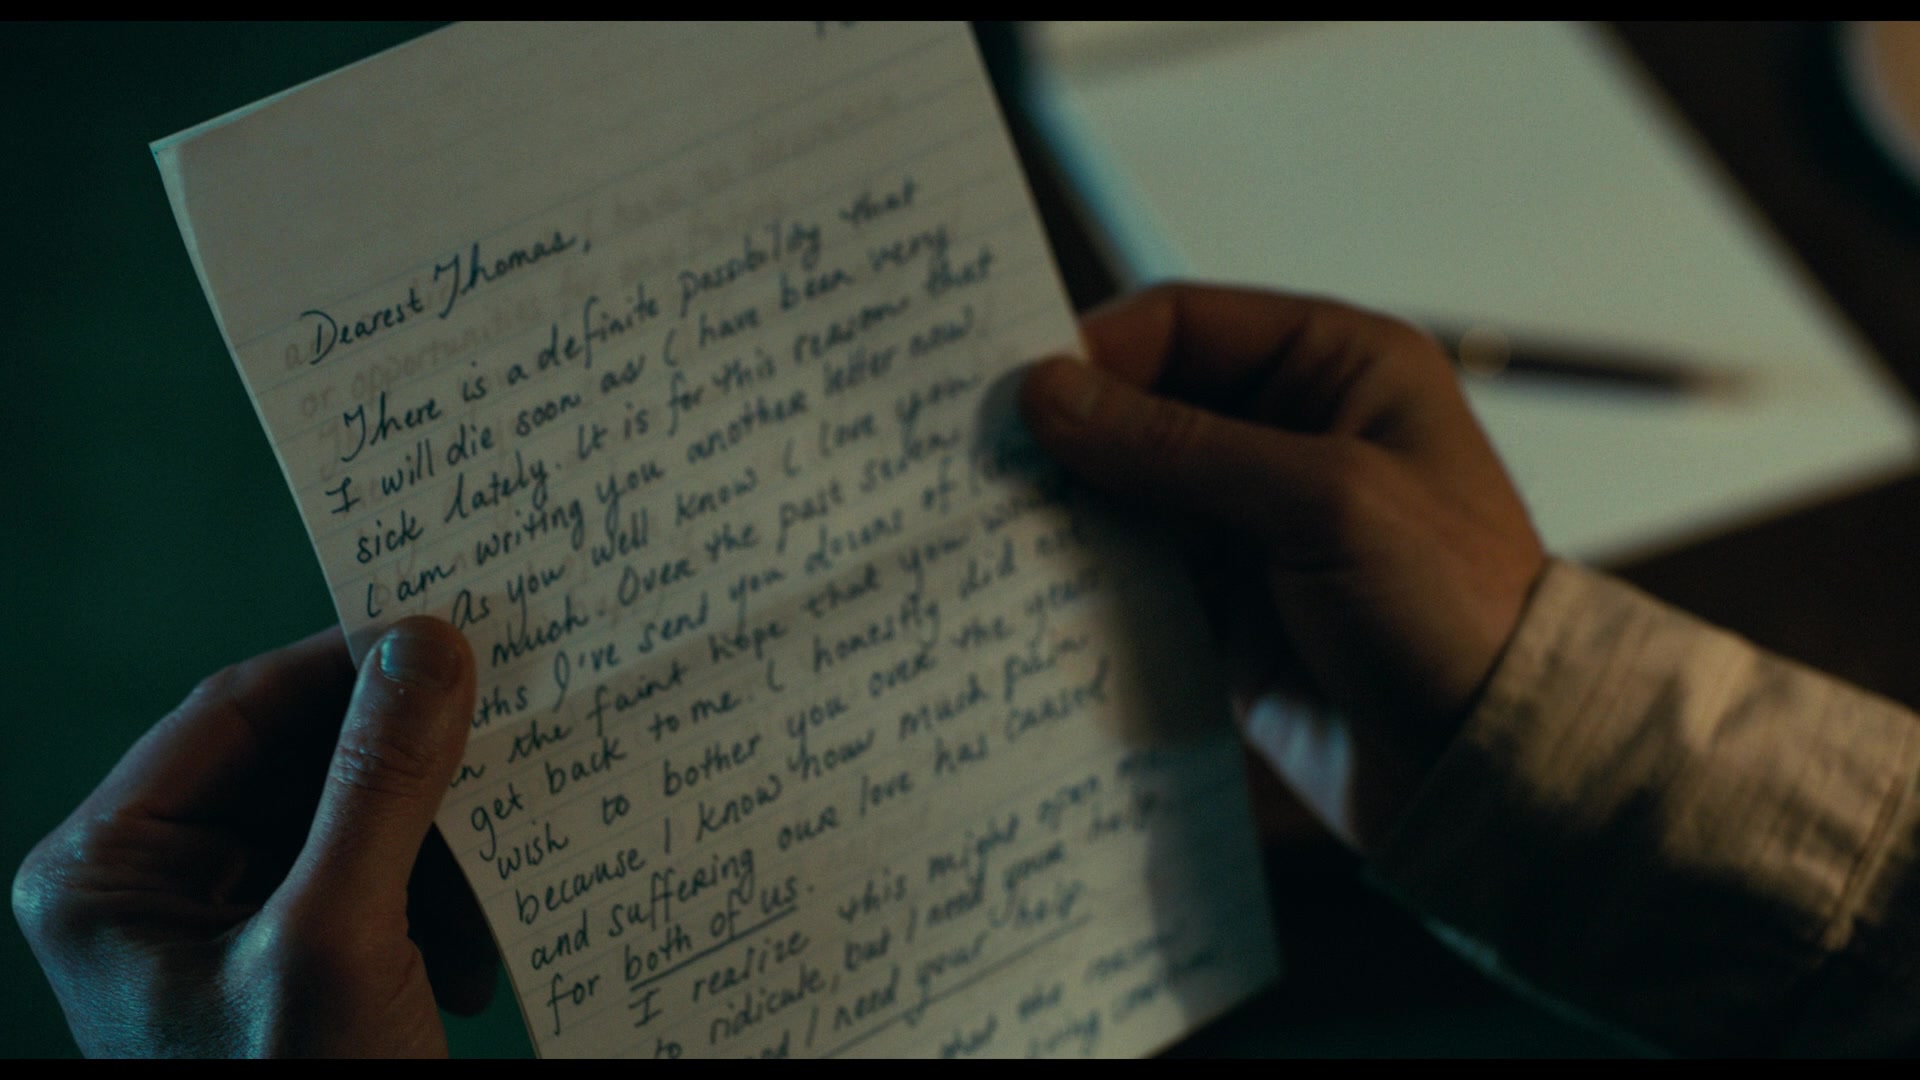 Dearest Thomas,
There is a definite possibility that
I will die soon as I have been very
sick lately. It is for this reason that
I am writing you another letter now.
As you well know I love you
much. Over the past seven
ths I've send you dozens of
in the faint hope that you
get back to me. I honestly did
wish to bother you over the years
because I know how much pain
and suffering our love has caused
for both of us.
I realize this might open
to ridicule, but I need your help.
I need your help
that the